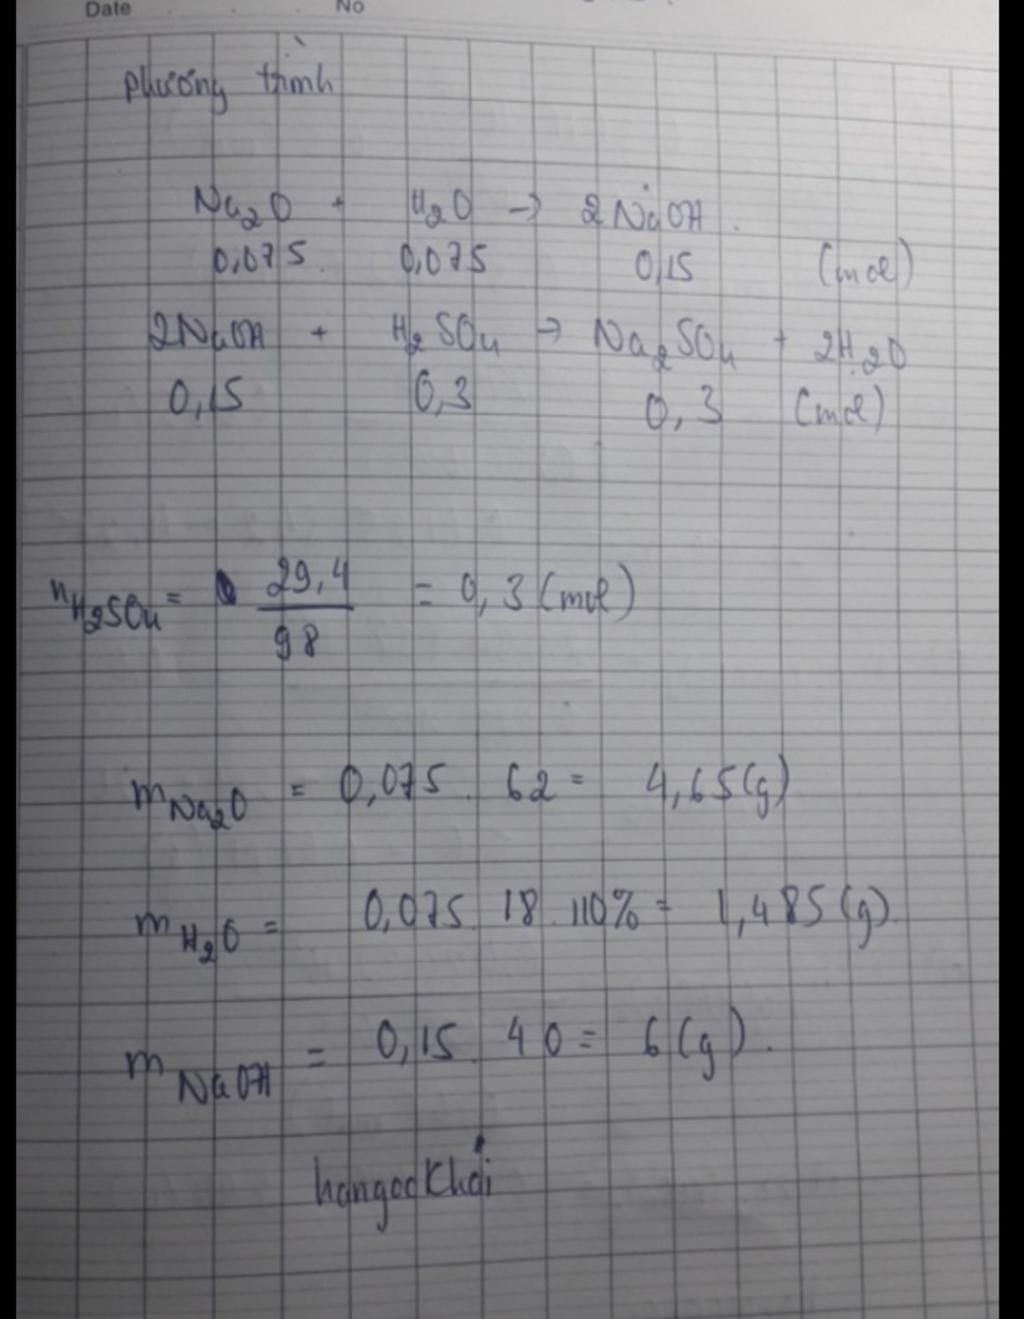 Date No
phương trình
Na₂O + H₂O → 2NaOH.
0,075 0,075 0,15 (mol)
2NaOH + H₂SO₄ → Na₂SO₄ + 2H₂O
0,15 0,3 0,3 (mol)
nH₂SO₄ = 29,4/98 = 0,3 (mol)
mNa₂O = 0,075 . 62 = 4,65 (g)
mH₂O = 0,075 . 18 . 110% = 1,485 (g).
mNaOH = 0,15 . 40 = 6 (g).